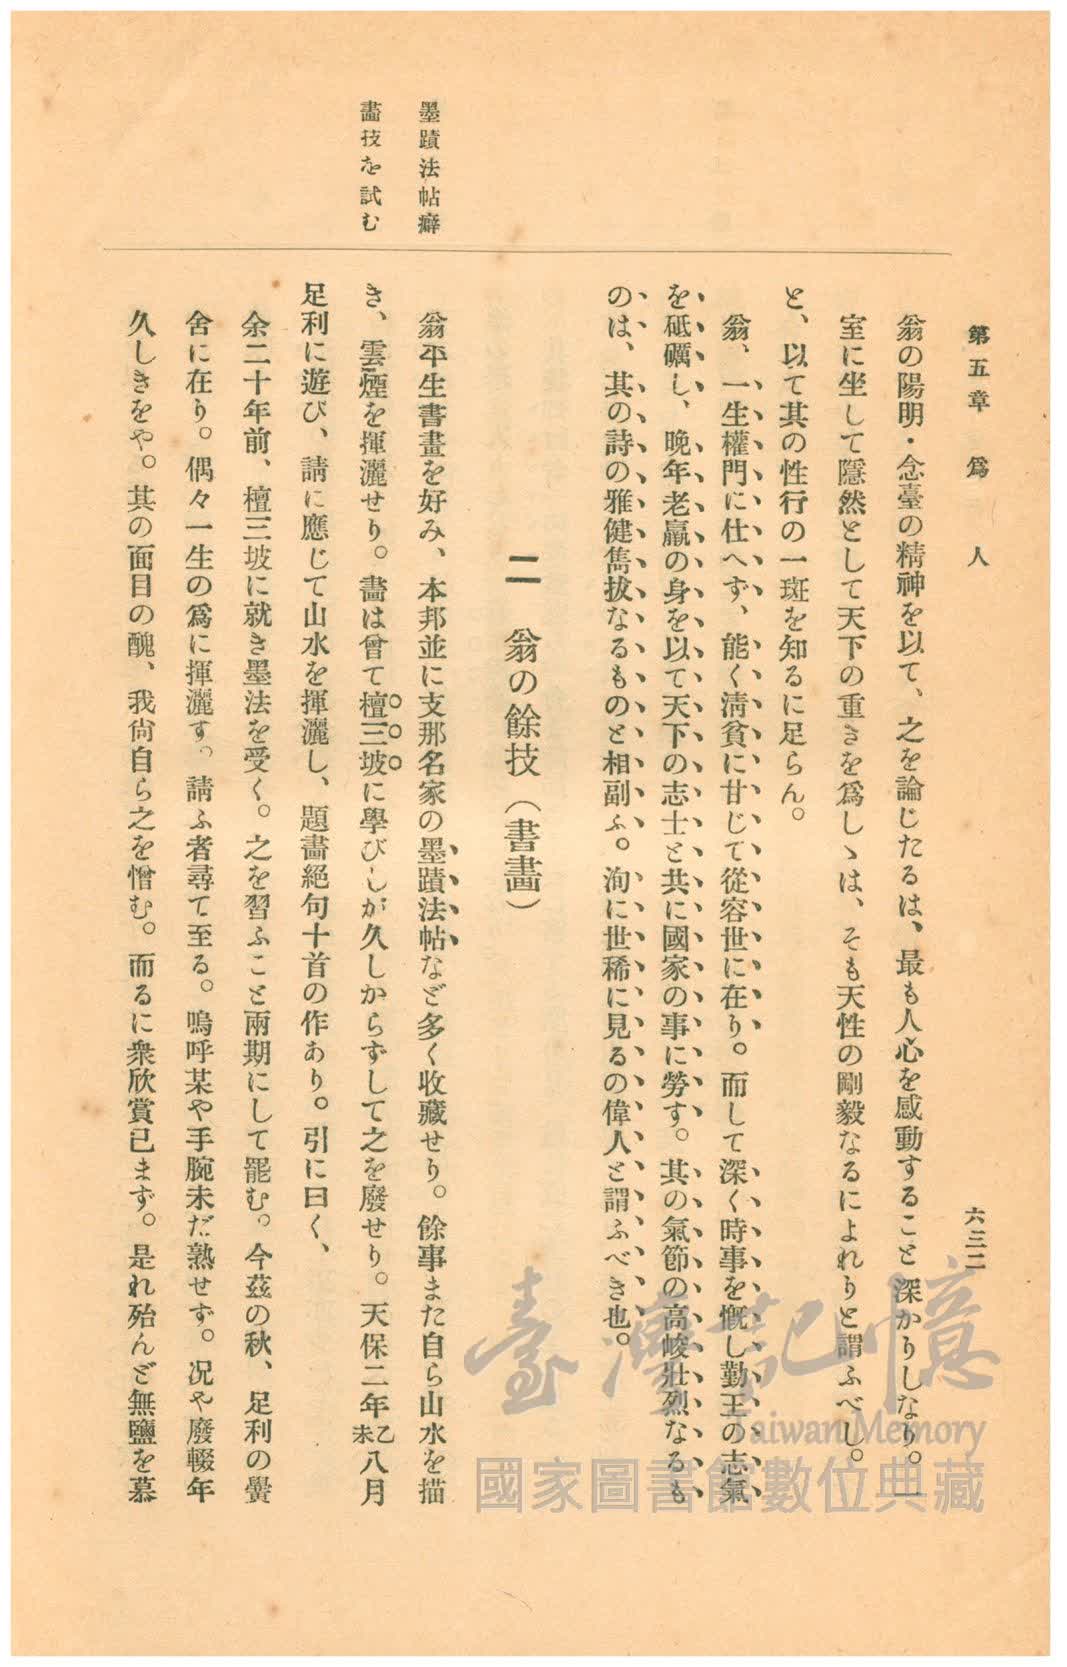 第五章 爲人
六三二
翁の陽明・念臺の精神を以て、之を論じたるは、最も人心を感動すること深かりしなり。一
室に坐して隱然として天下の重きを爲しゝは、そも天性の剛毅なるによれりと謂ふべし。
と、以て其の性行の一斑を知るに足らん。
翁、一生權門に仕へず、能く淸貧に甘じて從容世に在り。而して深く時事を慨し勤王の志氣
を砥礪し、晩年老羸の身を以て天下の志士と共に國家の事に勞す。其の氣節の高峻壯烈なるも
のは、其の詩の雅健雋拔なるものと相副ふ。洵に世稀に見るの偉人と謂ふべき也。
二 翁の餘技（書畫）
墨蹟法帖癖
翁平生書畫を好み、本邦並に支那名家の墨蹟法帖など多く收藏せり。餘事また自ら山水を描
畵技を試む
き、雲煙を揮灑せり。畵は曾て檀三坡に學びしが久しからずして之を廢せり。天保二年乙未八月
足利に遊び、請に應じて山水を揮灑し、題畵絕句十首の作あり。引に曰く、
余二十年前、檀三坡に就き墨法を受く。之を習ふこと兩期にして罷む。今茲の秋、足利の黌
舍に在り。偶々一生の爲に揮灑す。請ふ者尋て至る。嗚呼某や手腕未だ熟せず。况や廢輟年
久しきをや。其の面目の醜、我尙自ら之を憎む。而るに衆欣賞已まず。是れ殆んど無鹽を慕
臺灣記憶
Taiwan Memory
國家圖書館數位典藏